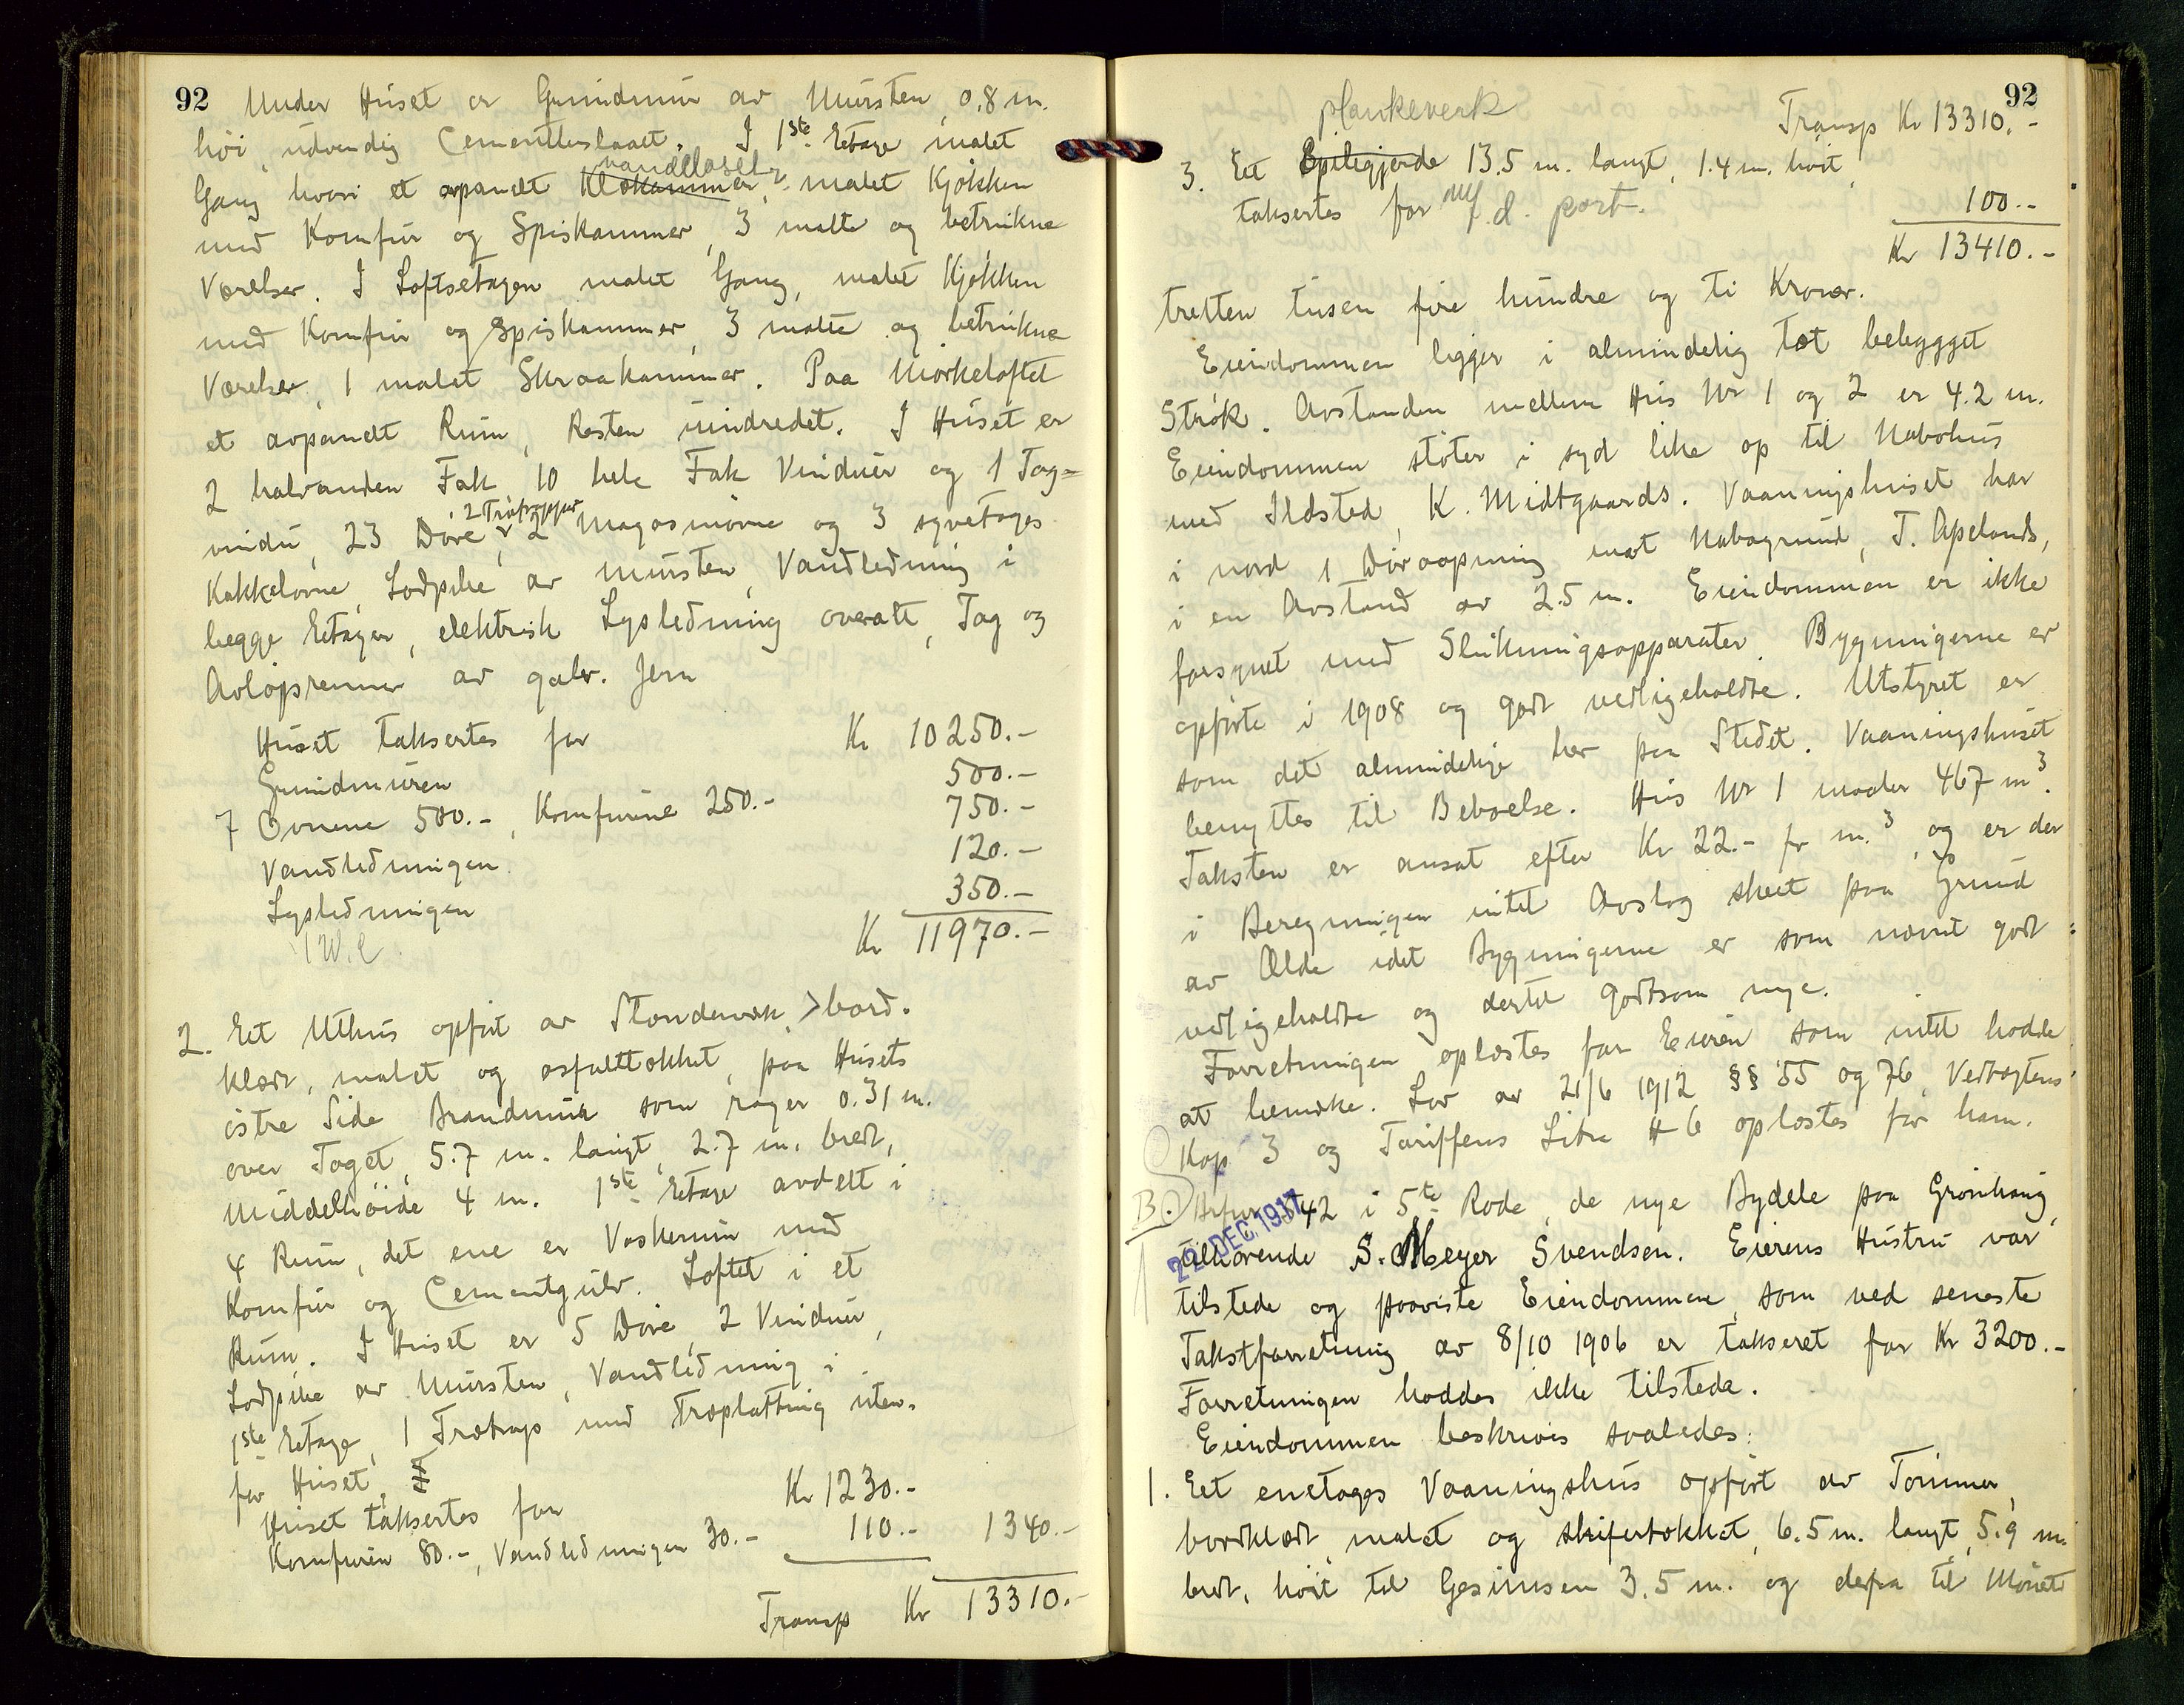 92
Under Huset er Grundmur av Mursten 0,8 m.
höi, udvendig Cementteslaaet. I 1ste Etage malet
vandcloset
Gang hvori et avpanelt Klækammer, malet Kjökken
med Komfur og Spiskammer, 3 malte og betrukne
Værelser. I Loftsetagen malet Gang, malet Kjökken
med Komfur og Spiskammer, 3 malte og betrukne
Værelser, 1 malet Skraakammer. Paa Mörkeloftet
et avpanelt Rum, Resten uindredet. I Huset er
2 halvanden Fak, 10 hele Fak Vinduer og 1 Tag=
2 Trætrapper
vindu, 23 Döre, 2 Magasinovne og 3 syvetages
Kakkelovne, Lodpibe av Mursten, Vandledning i
begge Etager, elektrisk Lysledning overalt, Tag og
Avlöpsrenner av galv. Jern
Huset takseres for Kr 10250.-
Grundmuren 500.-
7 Ovnene 500.-, Komfurene 250.- 750.-
Vandledningen 120.-
Lysledningen 350.-
1 W.C. Kr 11970.-
2. Et Uthus opfört av Stenderverk, >bord.
klædt, malet og asfalttækket, paa Husets
östre Side Brandmur som rager 0.31 m.
over Taget, 5.7 m. langt, 2.7 m. bredt,
Middelhöide 4 m. 1ste Etage avdelt i
4 Rum, det ene er Vaskerum med
Komfur og Cementgulv. Loftet i et
Rum. I Huset er 5 Döre, 2 Vinduer,
Lodpibe av Mursten, Vandledning i
1ste Etage, 1 Trætrap med Træplatting uten=
for Huset, I
Huset takseres for Kr 1230.-
Komfuren 80.-, Vandledningen 30.- 110.- 1340.-
Transp Kr 13310.-
92
Transp Kr 13310.-
plankeverk
3. Et Spilegjerde 13.5 m. langt, 1.4 m. höit,
takseres for m/ d. port. 100.-
Kr 13410.-
tretten tusen fire hundre og ti Kroner.
Eiendommen ligger i almindelig tæt bebygget
Strök. Avstanden mellem Hus Nr 1 og 2 er 4.2 m.
Eiendommen støter i syd like op til Nabohus
med Ildsted, K. Midtgaards. Vaaningshuset har
i nord 1 Döraapning mot Nabogrund, T. Apelands,
i en Avstand av 2.5 m. Eiendommen er ikke
forsynet med Slukningsapparater. Bygningerne er
opförte i 1908 og godt vedligeholdte. Utstyret er
som det almindelige her paa Stedet. Vaaningshuset
benyttes til Beboelse. Hus Nr 1 maaler 467 m³.
Taksten er ansat efter Kr 22.- pr m.³, og er der
i Beregningen intet Avslag skeet paa Grund
av Ælde idet Bygningerne er som nævnt godt
vedligeholdte og dertil godtsom nye.
Forretningen oplæstes for Eieren som intet hadde
at bemerke. Lov av 21/6 1912 §§ 55 og 76, Vedtægtens
Kap 3 og Tariffens Litra H 6 oplæstes for ham.
B. 542 i 5te Rode, de nye Bydele paa Grönhaug,
22 DEC 1917
tilhörende S. Meyer Svendsen. Eierens Hustru var
tilstede og paaviste Eiendommen, som ved seneste
Takstforretning av 8/10 1906 er takseret for Kr 3200.-
Forretningen haddes ikke tilstede.
Eiendommen beskrives saaledes:
1. Et enetages Vaaningshus opfört av Tömmer,
bordklædt, malet og skifertækket, 6.5 m. langt, 5.9 m.
bredt, höit til Gesimsen 3.5 m. og derfra til Mönet